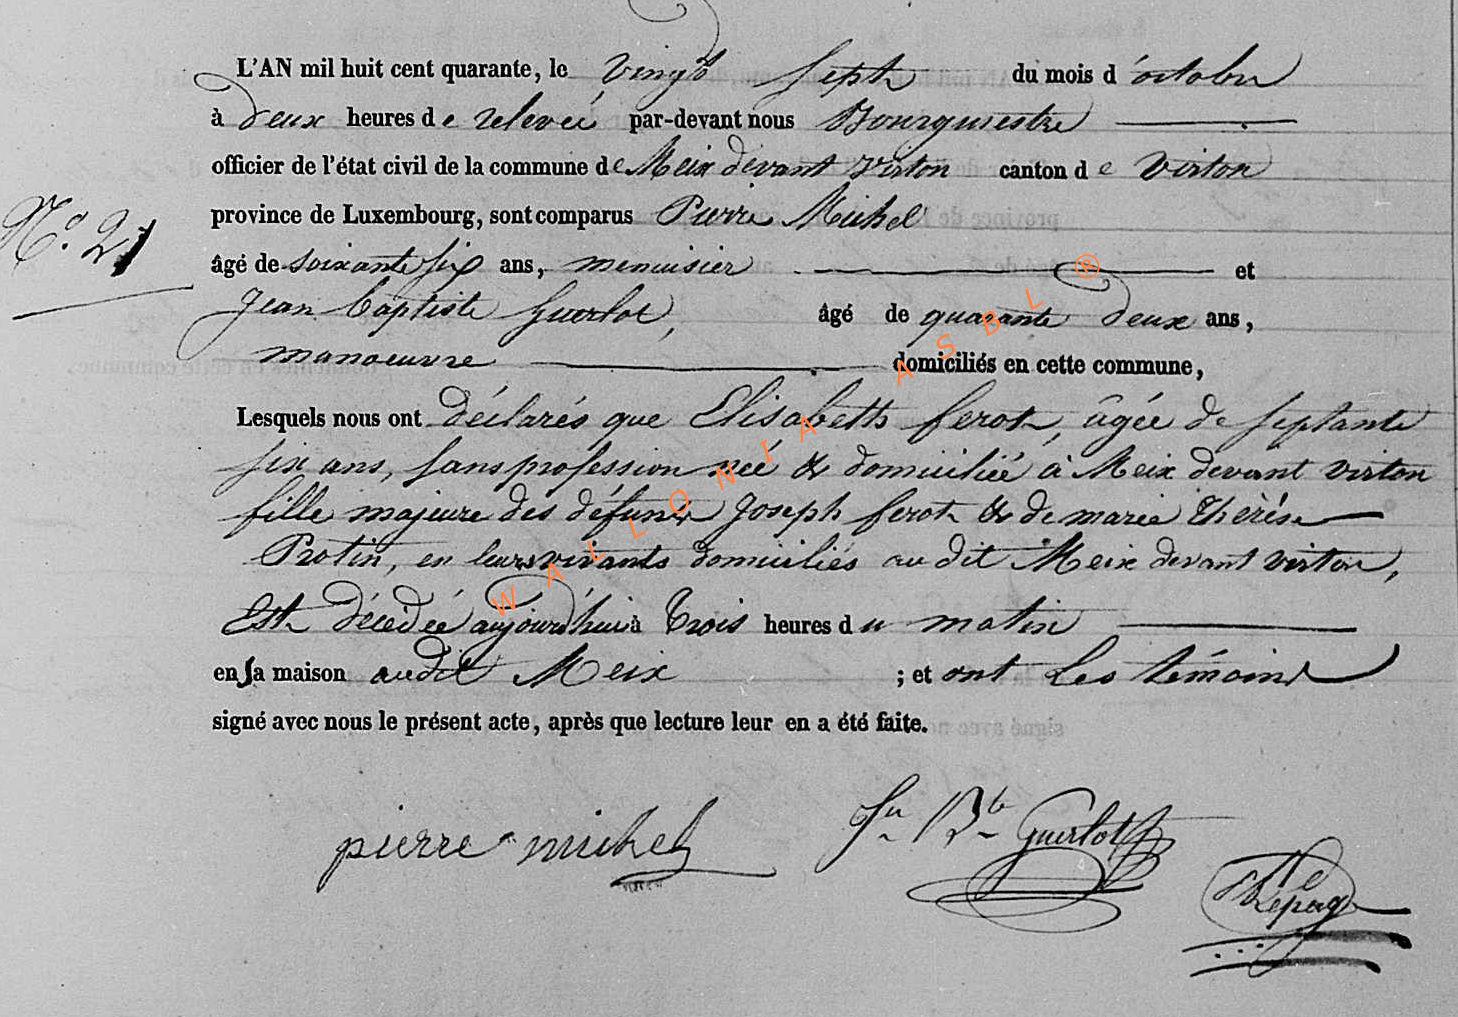 L'AN mil huit cent quarante, le vingt sept du mois d'octobre
à deux heures de relevée par-devant nous Bourgmestre
officier de l'état civil de la commune de Meix devant virton canton de Virton
N.° 21
province de Luxembourg, sont comparus Pierre Michel
âgé de soixante six ans, menuisier et
Jean baptiste Guerlot, âgé de quarante deux ans,
manoeuvre domiciliés en cette commune,
Lesquels nous ont déclarés que Elisabeth ferot, âgée de septante
six ans, sans profession née & domiciliée à Meix devant virton
fille majeure des défunts Joseph ferot & de marie thérèse
Protin, en leurs vivants domiciliés au dit Meix devant virton,
Est décédée aujourd'hui à trois heures du matin
en sa maison audit Meix ; et ont les témoins
signé avec nous le présent acte, après que lecture leur en a été faite.
pierre michel
Jn Bte Guerlot
Lepage
WALLONIA ASBL ®